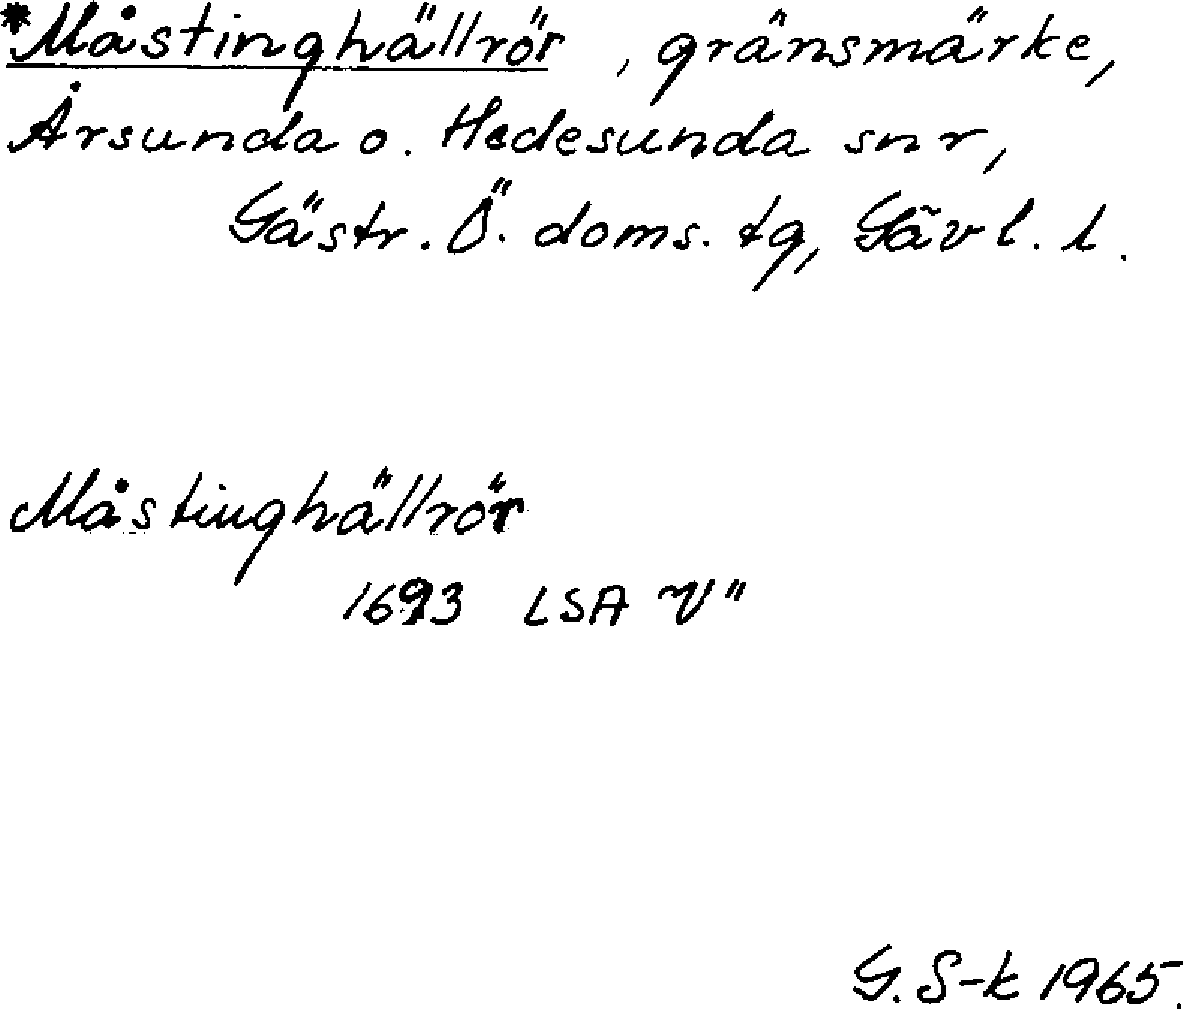 *Måstinghällrör, gränsmärke,
Årsunda o. Hedesunda snr,
Gästr. Ö. doms. tg, Gävl. l.
Måstinghällrör
1693 LSA V"
G. S-k 1965.